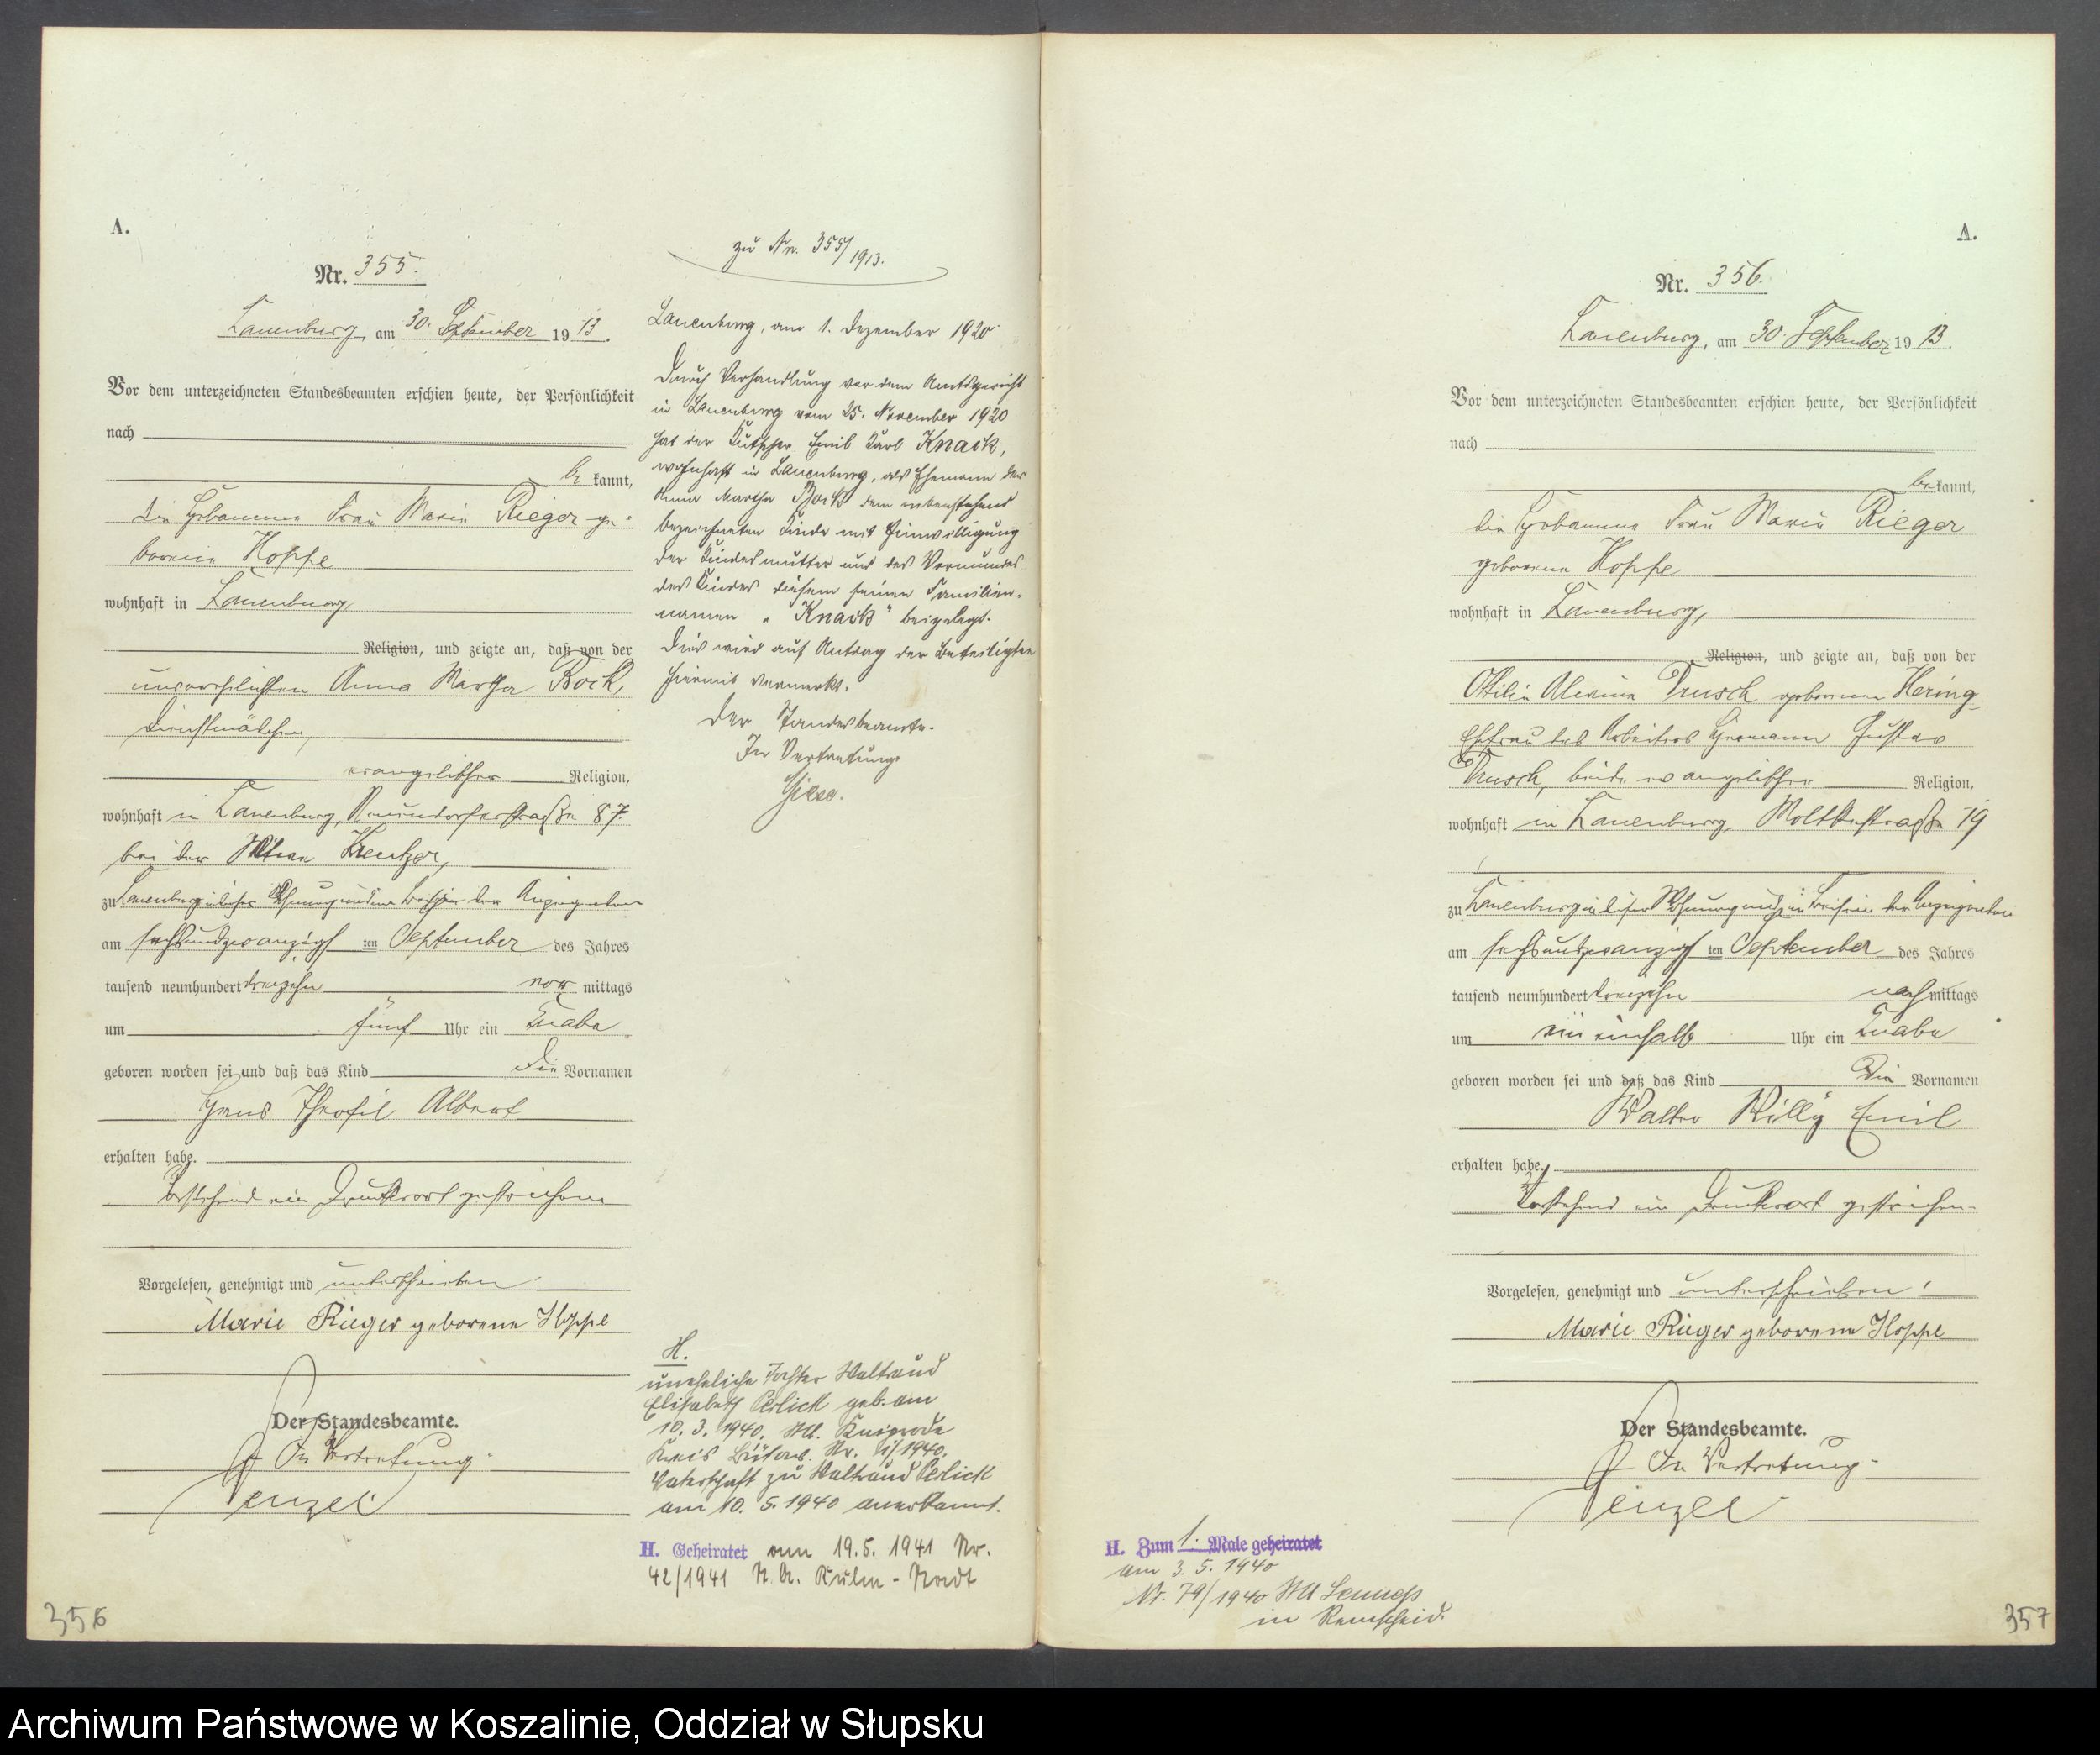 A.
Nr. 355.
Lauenburg, am 30. September 1913.
Vor dem unterzeichneten Standesbeamten erschien heute, der Persönlichkeit
nach
be kannt,
die Hebamme Frau Marie Rieger ge-
borene Hoppe
wohnhaft in Lauenburg,
Religion, und zeigte an, daß von der
unverehelichten Anna Martha Bock,
Dienstmädchen,
evangelischer Religion,
wohnhaft in Lauenburg, Neuendorferstraße 87
bei der Witwe Kreutzer,
zu Lauenburg in dieser Wohnung und im Beisein der Anzeigenden
am sechsundzwanzigsten September des Jahres
tausend neunhundert dreizehn vor mittags
um fünf Uhr ein Knabe
geboren worden sei und daß das Kind die Vornamen
Hans Theofil Albert
erhalten habe.
Vorstehend ein Druckwort gestrichen
Vorgelesen, genehmigt und unterschrieben
Marie Rieger geborene Hoppe
Der Standesbeamte.
In Vertretung.
Penzel
zu Nr. 355/1913.
Lauenburg, am 1. Dezember 1920
Durch Verhandlung vor dem Amtsgericht
in Lauenburg vom 25. November 1920
hat der Kutscher Emil Karl Knack,
wohnhaft in Lauenburg, als Ehemann der
Anna Martha Bock dem nebenstehend
bezeichneten Kinde mit Einwilligung
der Kindesmutter und des Vormundes
des Kindes diesem seinen Familien-
namen „Knack" beigelegt.
Dies wird auf Antrag der Beteiligten
hiermit vermerkt.
Der Standesbeamte.
In Vertretung
Giese.
H.
uneheliche Tochter Waltraud
Elisabeth Perlick geb. am
10. 3. 1940. StA. Kniprode
Kreis Bütow. Nr. 1/1940.
Vaterschaft zu Waltraud Perlick
am 10. 5. 1940 anerkannt.
H. Geheiratet am 19.5. 1941 Nr.
42/1941 St. A. Kulm-Stadt
356
A.
Nr. 356.
Lauenburg, am 30. September 1913.
Vor dem unterzeichneten Standesbeamten erschien heute, der Persönlichkeit
nach
be kannt,
die Hebamme Frau Marie Rieger
geborene Hoppe
wohnhaft in Lauenburg,
Religion, und zeigte an, daß von der
Ottilie Alwine Trusch geborenen Hering
Ehefrau des Arbeiters Hermann Gustav
Trusch, beide evangelischer Religion,
wohnhaft in Lauenburg, Moltkestraße 19
zu Lauenburg in dieser Wohnung und im Beisein der Anzeigenden
am sechsundzwanzigsten September des Jahres
tausend neunhundert dreizehn nach mittags
um ein einhalb Uhr ein Knabe
geboren worden sei und daß das Kind die Vornamen
Walter Willy Emil
erhalten habe.
Vorstehend ein Druckwort gestrichen.
Vorgelesen, genehmigt und unterschrieben
Marie Rieger geborene Hoppe
Der Standesbeamte.
In Vertretung.
Penzel
H. Zum 1. Male geheiratet
am 3. 5. 1940
Nr. 79/1940 StA Lennep
in Remscheid.
357
Archiwum Państwowe w Koszalinie, Oddział w Słupsku